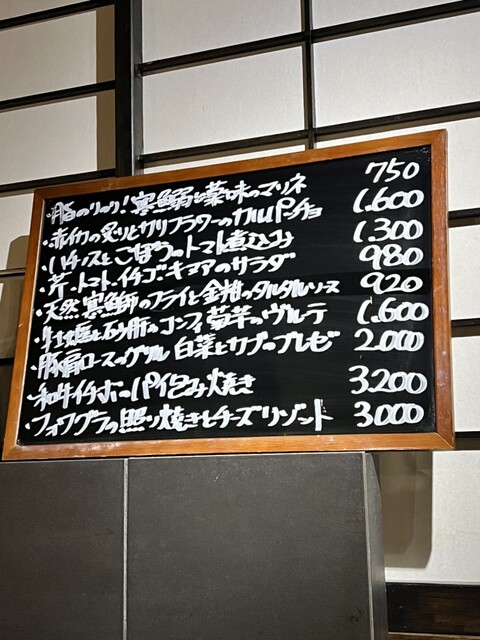 ・脂のりのり!寒鰯と薬味のマリネ 750
・赤イカの炙りとカリフラワーのカルパッチョ 1.600
・ハチノスとごぼうのトマト煮込み 1.300
・芹・トマト・イチゴ・キヌアのサラダ 980
・天然寒鰤のフライと金柑のタルタルソース 920
・牡蠣と砂肝のコンフィ菊芋のヴルーテ 1.600
・豚肩ロースのグリル 白菜とサブのブレゼ 2.000
・和牛イチボのパイ包み焼き 3.200
・フォワグラの照り焼きとチーズリゾット 3.000